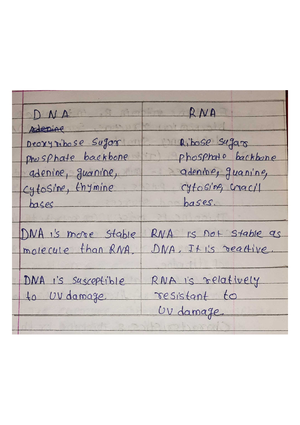 DNA
RNA
Adenine
Deoxyribose sugar
phosphate backbone
adenine, guanine,
cytosine, thymine
bases
Ribose sugars
phosphate backbone
adenine, guanine,
cytosine, uracil
bases.
DNA is more stable
molecule than RNA.
RNA is not stable as
DNA. It is reactive.
DNA is susceptible
to UV damage.
RNA is relatively
resistant to
UV damage.